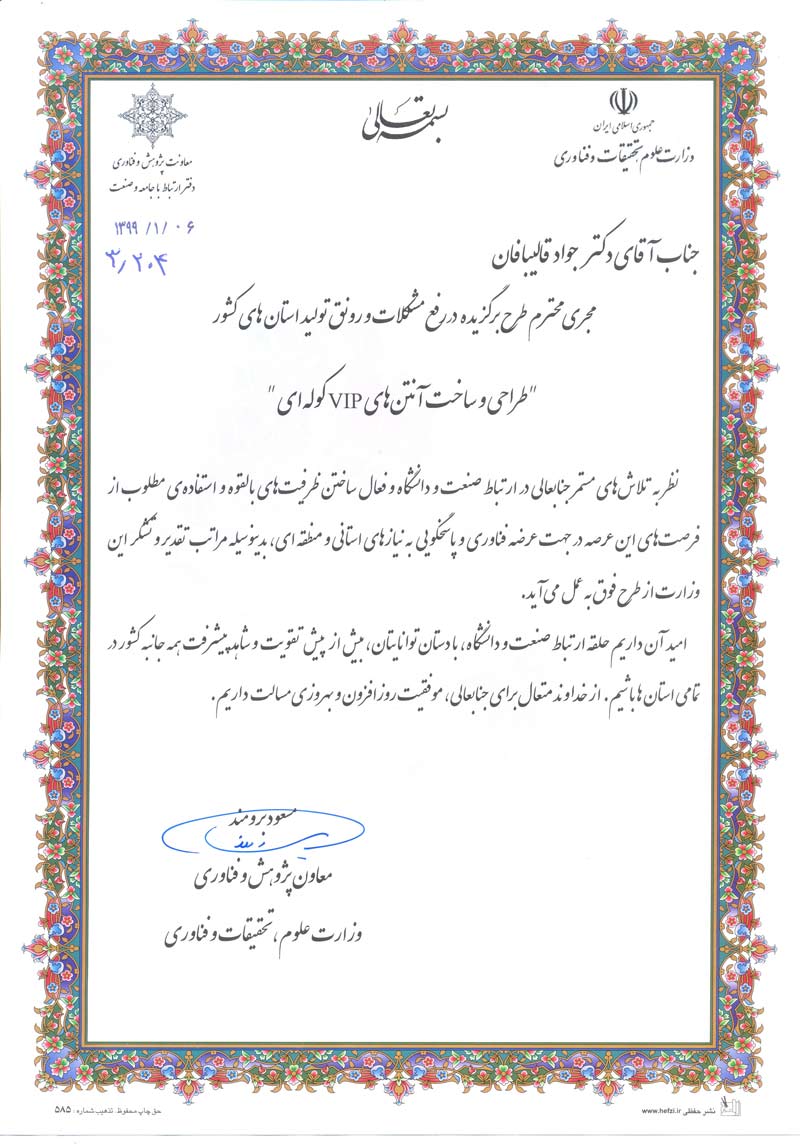 بسمه تعالی
جمهوری اسلامی ایران
وزارت علوم تحقیقات و فناوری
معاونت پژوهش و فناوری
دفتر ارتباط با جامعه و صنعت
۱۳۹۹ /۱/ ۰۶
۳٫۲۰۴
جناب آقای دکتر جواد قالیبافان
مجری محترم طرح برگزیده در رفع مشکلات و رونق تولید استان های کشور
"طراحی و ساخت آنتن های VIP کوله ای"
نظر به تلاش های مستمر جنابعالی در ارتباط صنعت و دانشگاه و فعال ساختن ظرفیت های بالقوه و استفاده ی مطلوب از
فرصت های این عرصه در جهت عرضه فناوری و پاسخگویی به نیازهای استانی و منطقه ای، بدینوسیله مراتب تقدیر و تشکر این
وزارت از طرح فوق به عمل می آید.
امید آن داریم حلقه ارتباط صنعت و دانشگاه، با دستان توانایتان، بیش از پیش تقویت و شاهد پیشرفت همه جانبه کشور در
تمامی استان ها باشیم. از خداوند متعال برای جنابعالی، موفقیت روزافزون و بهروزی مسالت داریم.
مسعود برومند
معاون پژوهش و فناوری
وزارت علوم، تحقیقات و فناوری
نشر حفظی www.hefzi.ir
حق چاپ محفوظ. تذهیب شماره: ۵۸۵